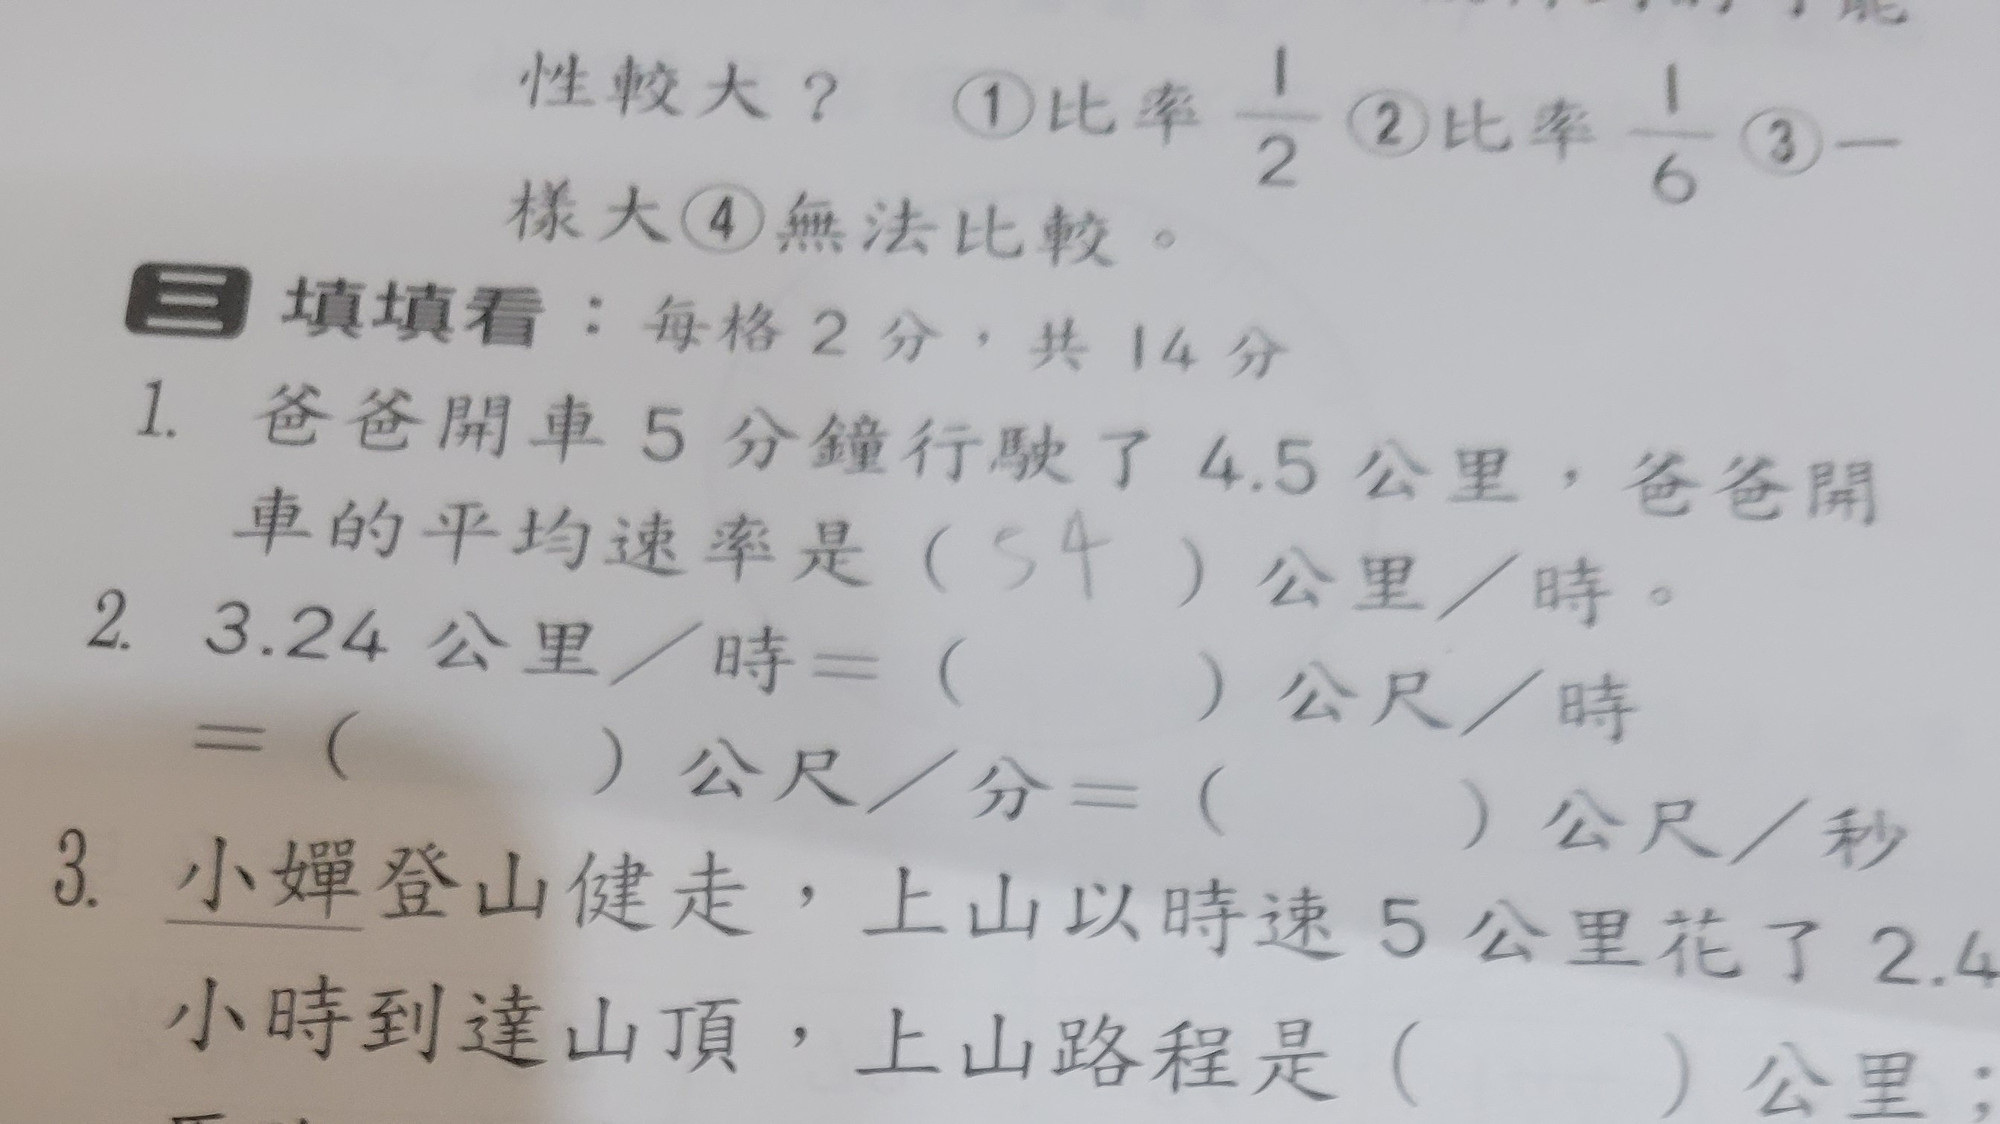 性較大? ①比率 1/2 ②比率 1/6 ③一
樣大④無法比較。
三 填填看:每格 2 分,共 14 分
1. 爸爸開車 5 分鐘行駛了 4.5 公里,爸爸開
車的平均速率是( 54 )公里/時。
2. 3.24 公里/時=( )公尺/時
=( )公尺/分=( )公尺/秒
3. 小嬋登山健走,上山以時速 5 公里花了 2.4
小時到達山頂,上山路程是( )公里;